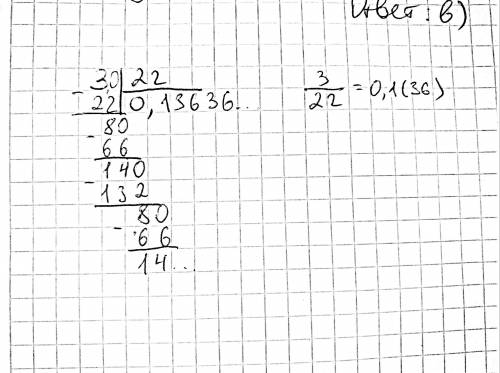 Ответ: в)
- 3,0 | 22
22 | 0,13636...
- 80
66
- 140
132
- 80
66
14...
3/22 = 0,1(36)